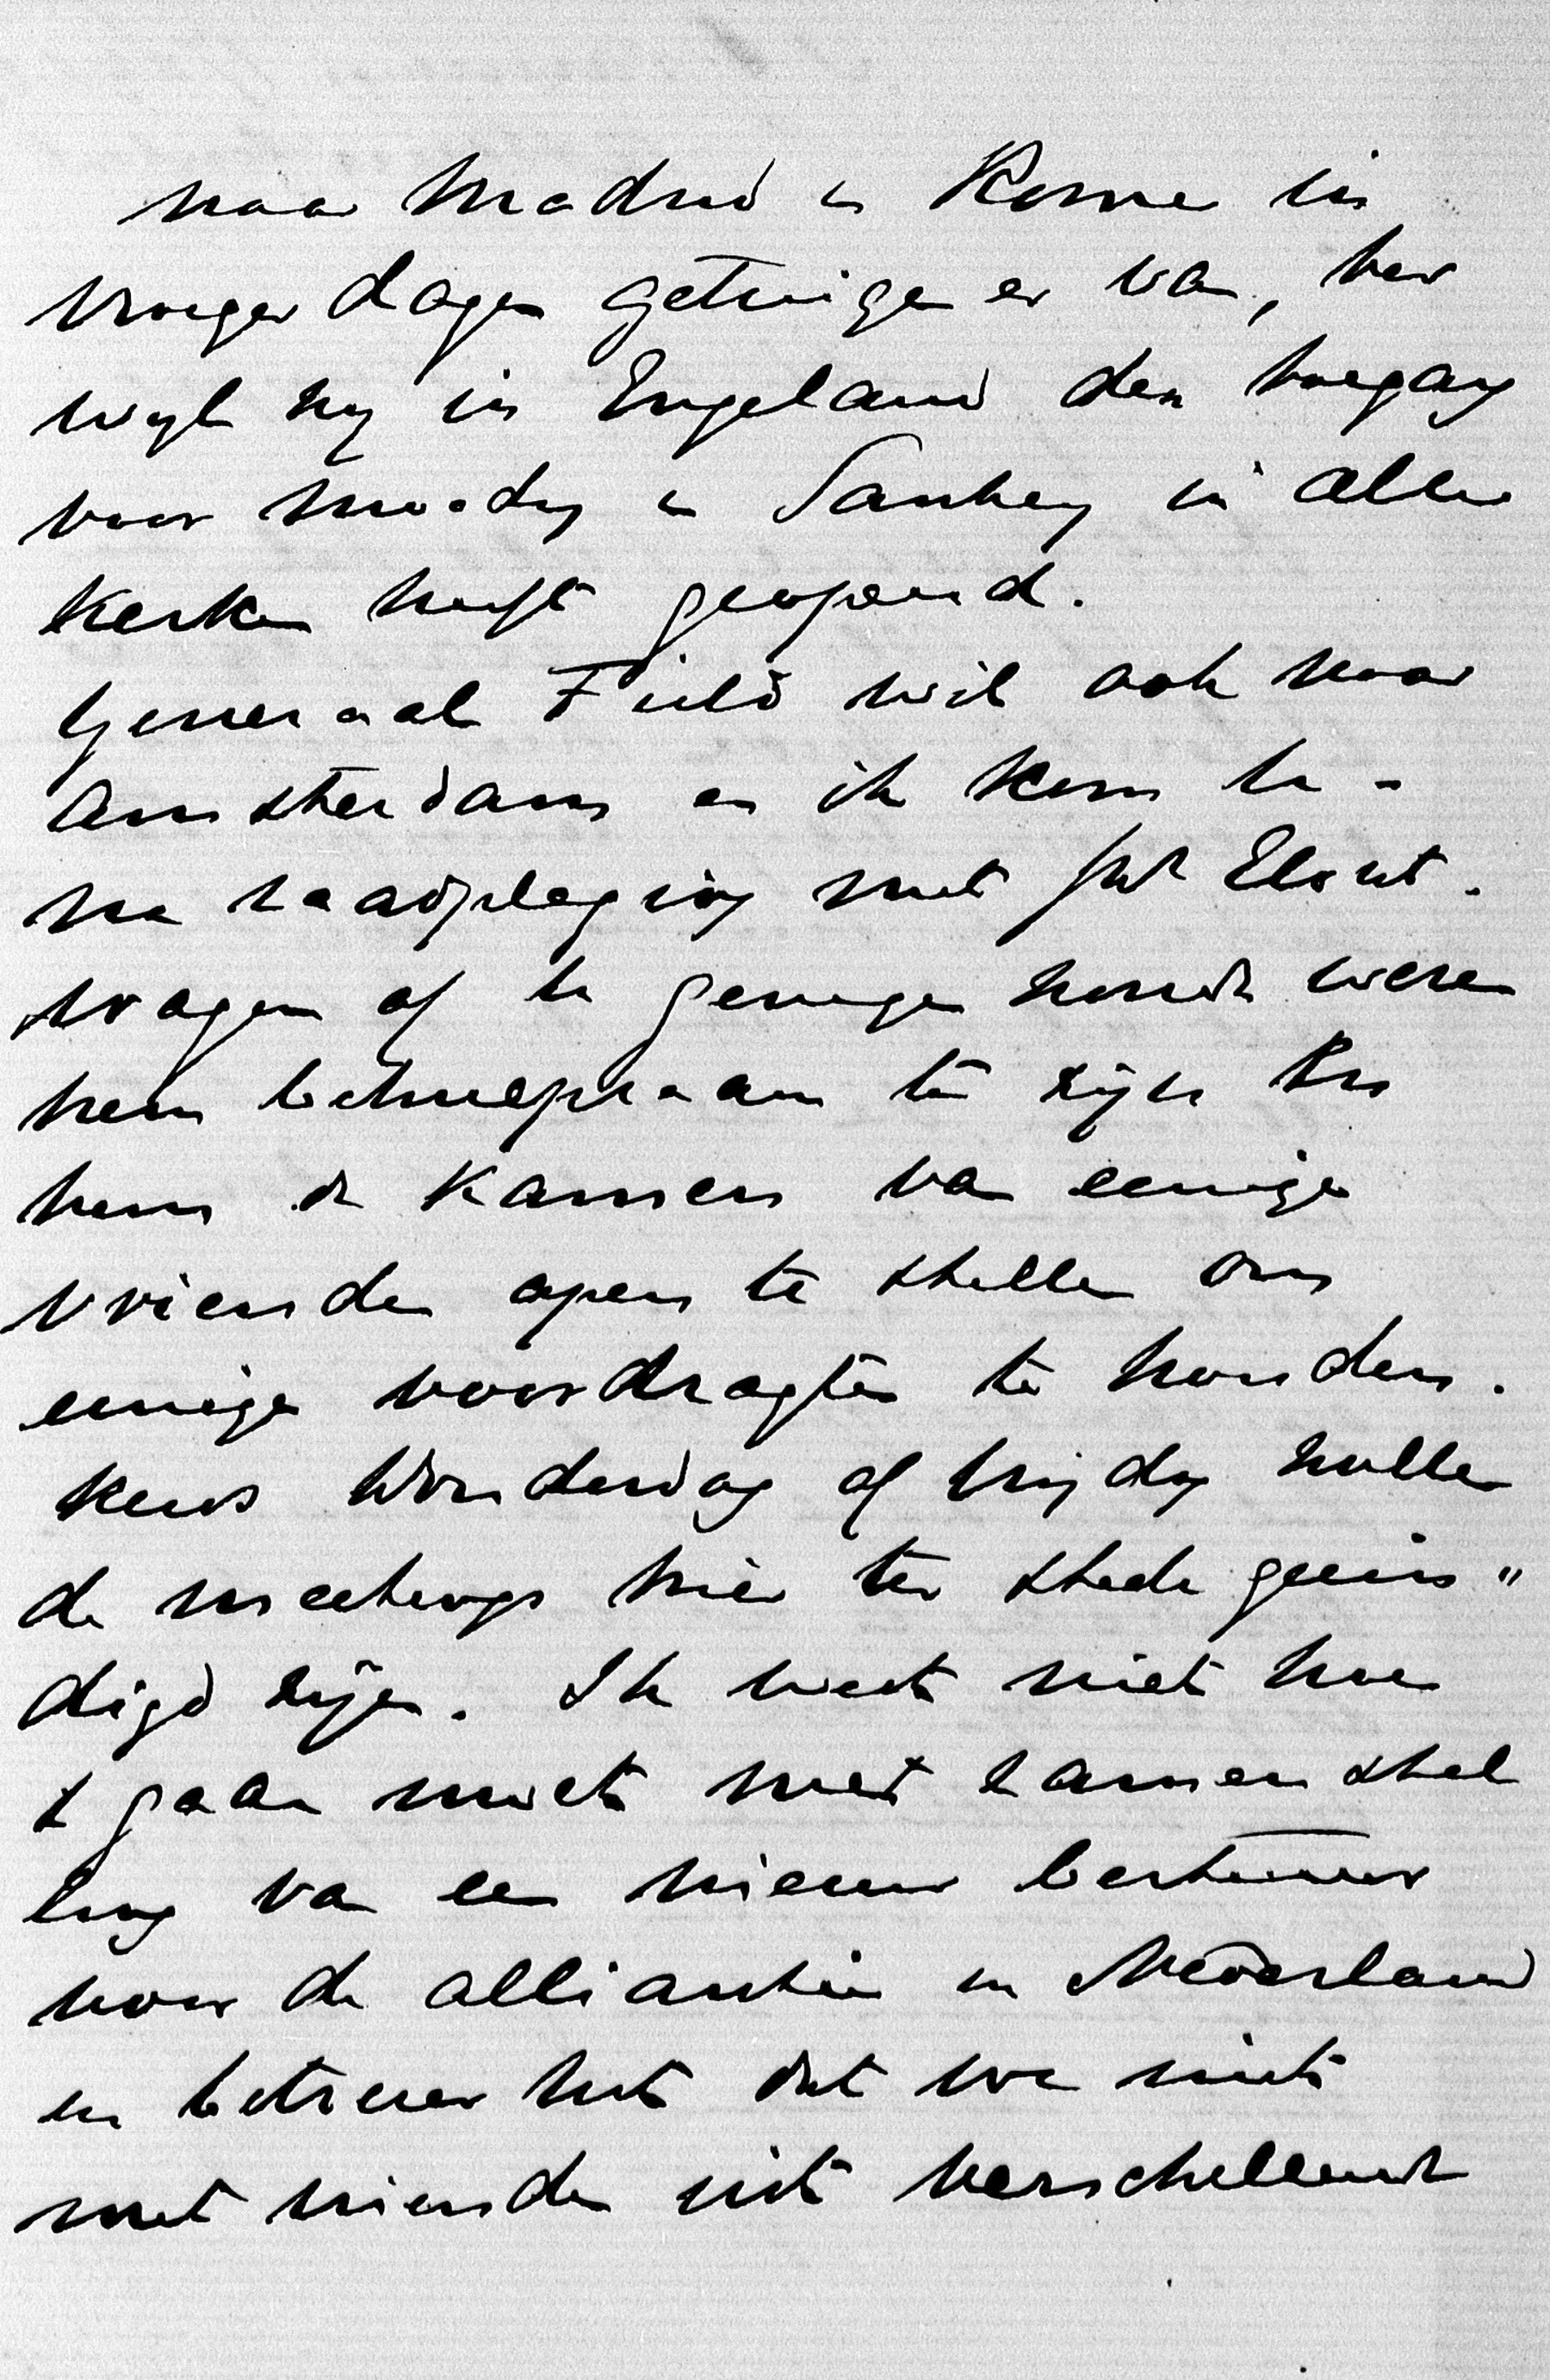 naar Madrid en Rome in
vroeger dagen getuigen er van, ter
wyl hy in Engeland den toegang
voor Moody en Sankey in alle
kerken heeft geopend.
Generaal Field wil ook naar
Amsterdam en ik kom U -
na raadpleging met Jhr Elout.
vragen of U genegen zoudt wezen
hem behulpzaam te zijn
hem de kamers van eenige
vrienden open te stellen om
eenige voordragten te houden.
Donderdag of Vrijdag zullen
de meetings hier ter stede geein"
digd zijn. Ik weet niet hoe
t gaan moet met zamenstel
ling van een nieuw bestuur
voor de alliantie in Nederland
en betreur het dat we niet
met vrienden uit verschillende